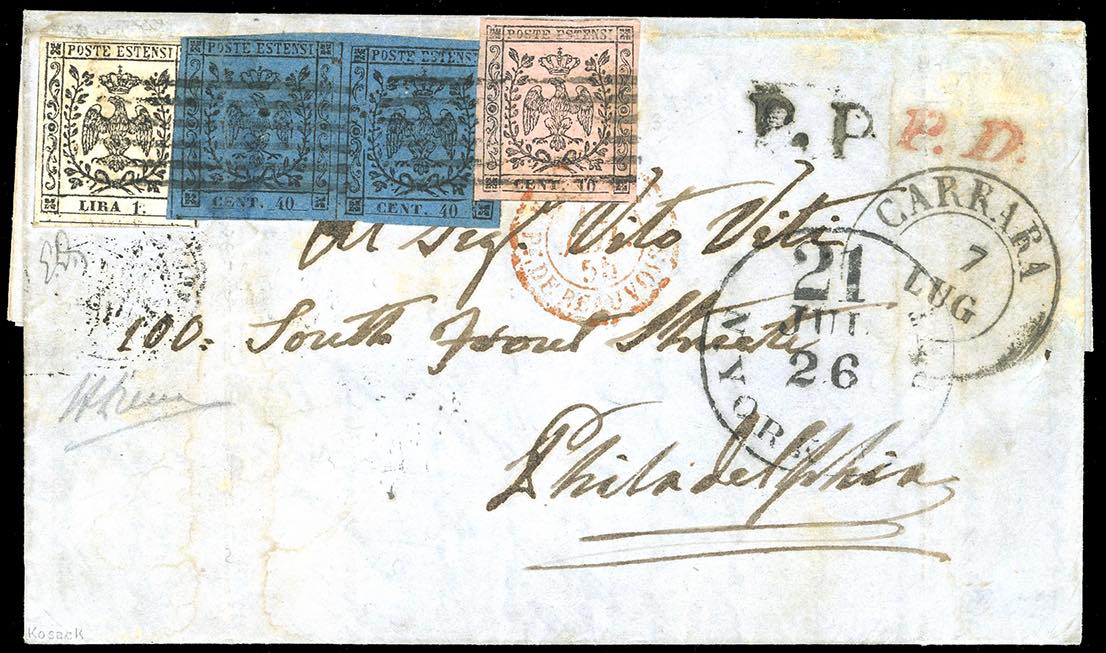 POSTE ESTENSI
LIRA 1.
POSTE ESTENSI
CENT. 40
POSTE ESTENSI
CENT. 40
POSTE ESTENSI
CENT. 10
P.P
P.D.
CARRARA
7
LUG
54
Al Sigr. Vito Viti
21
JUL
26
N YORK
100. South Front Streate
Philadelphia
Kosack